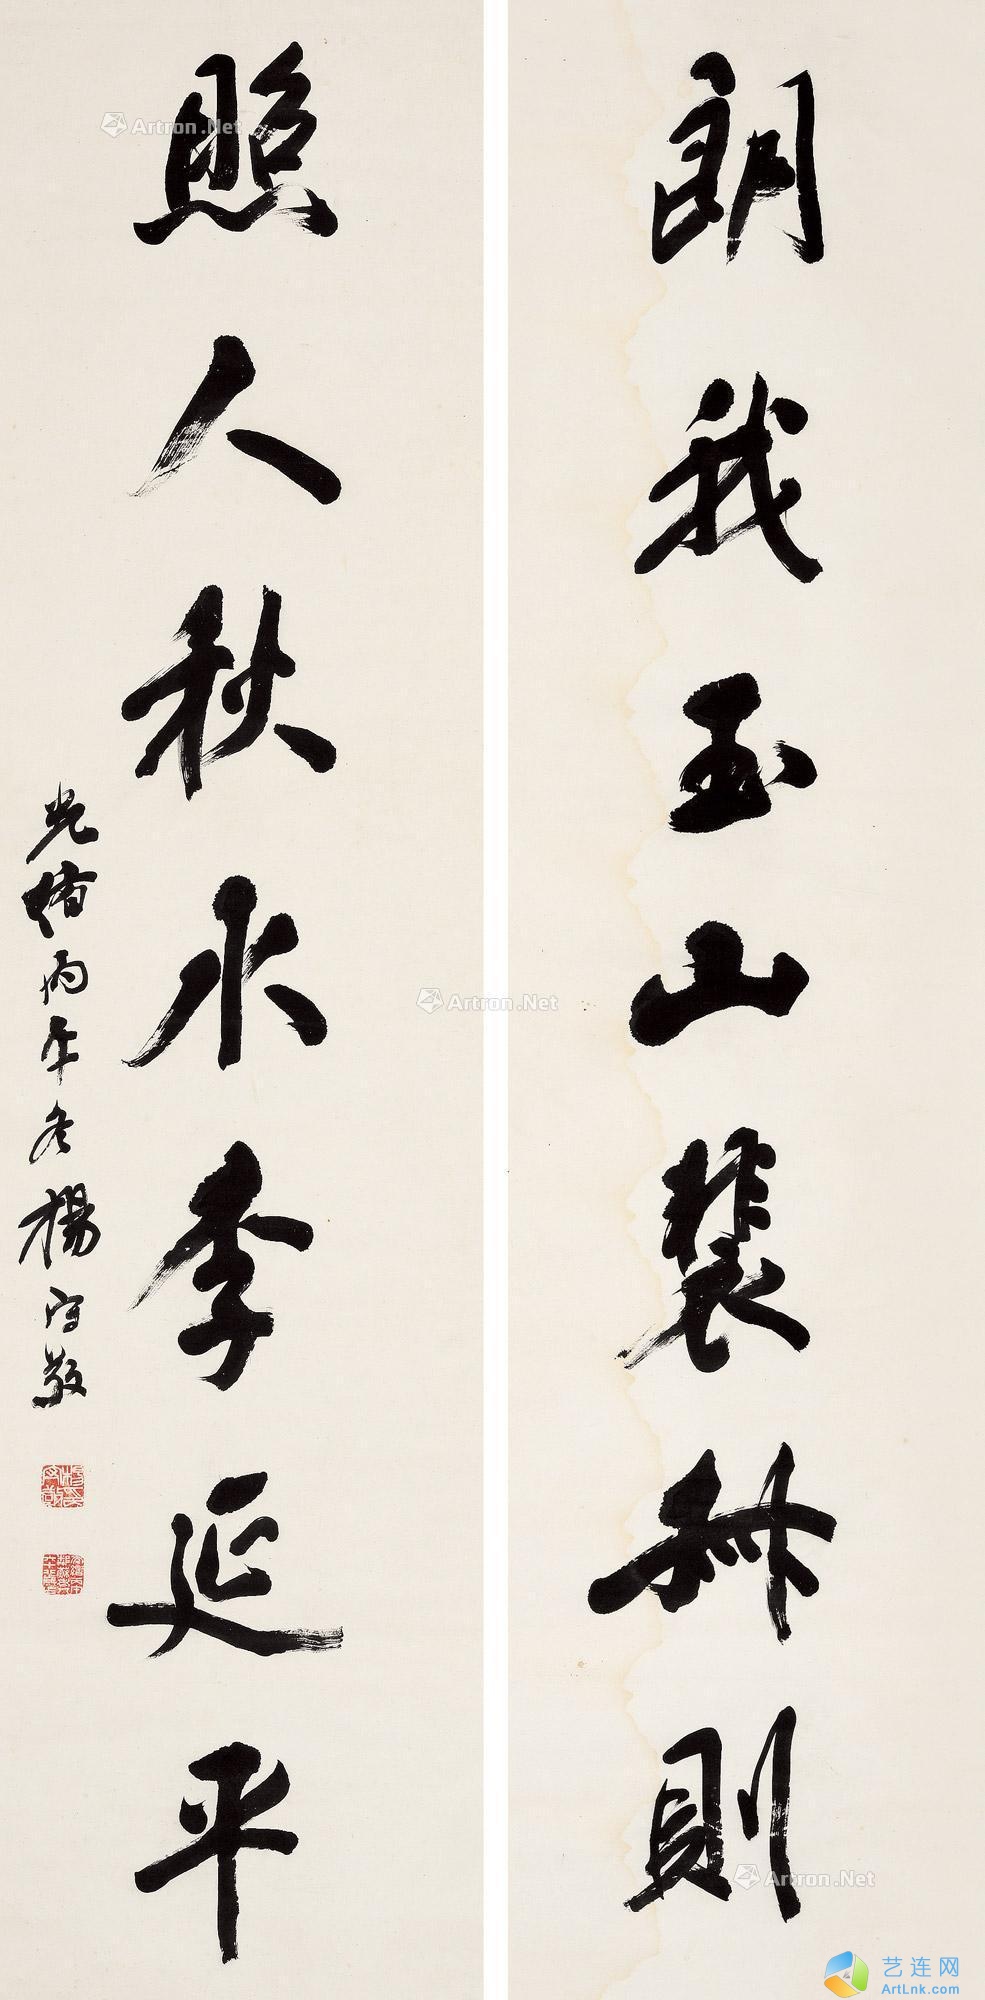 朗我玉山裴叔則
照人秋水李延平
光緒丙午冬楊守敬
Artron.Net
Artron.Net
Artron.Net
艺连网
ArtLnk.com